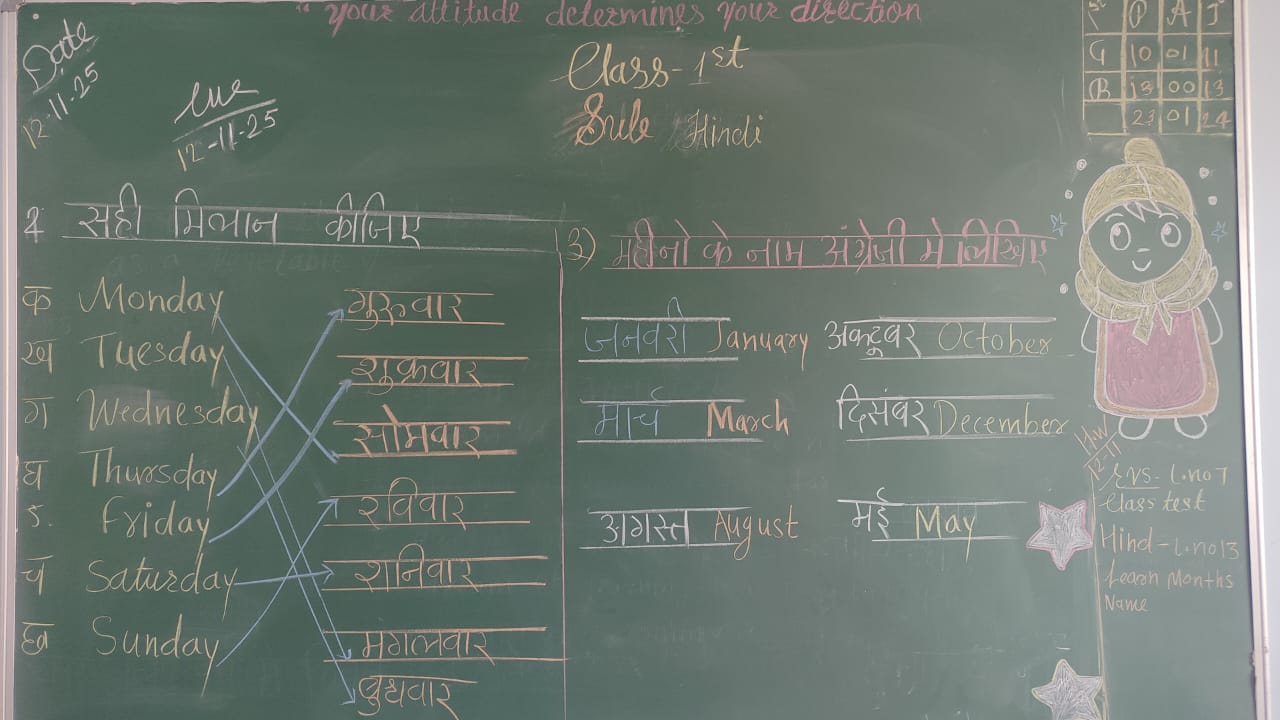 " your attitude determines your direction
Date
12-11-25
cue
12-11-25
Class- 1st
Sub Hindi
P A T
G 10 01 11
B 13 00 13
23 01 24
2 सही मिलान कीजिए
क Monday गुरूवार
ख Tuesday शुक्रवार
ग Wednesday सोमवार
घ Thursday रविवार
ड. Friday शनिवार
च Saturday मगलवार
छ Sunday बुधवार
3) महीनो के नाम अंग्रेजी मे लिखिए
जनवरी January अकटूबर October
मार्च March दिसंबर December
अगस्त August मई May
H.W
12-11
EVS- L.no 7
Class test
Hind- L.no 13
Learn Months
Name